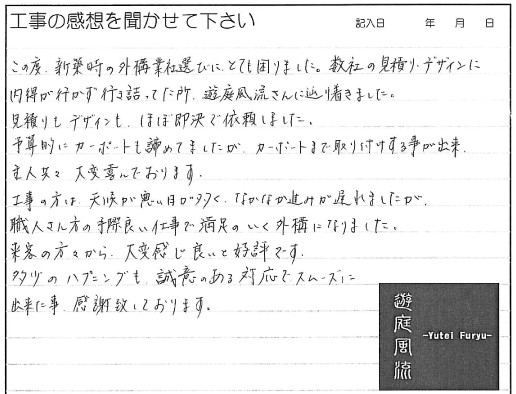 工事の感想を聞かせて下さい
記入日 年 月 日
この度、新築時の外構業社選びに、とても困りました。数社の見積り・デザインに
内得が行かず行き詰ってた所、遊庭風流さんに辿り着きました。
見積りも、デザインも、ほぼ即決で依頼しました。
予算的にカーポートも諦めてましたが、カーポートまで取り付けする事が出来、
主人共々、大変喜んでおります。
工事の方は、天候が悪い日が多く、なかなか進みが遅れましたが、
職人さん方の手際良い仕事で満足のいく外構になりました。
来客の方々から、大変感じ良いと好評です。
多少のハプニングも、誠意のある対応でスムーズに
出来た事、感謝致しております。
遊庭風流
-Yutei Furyu-